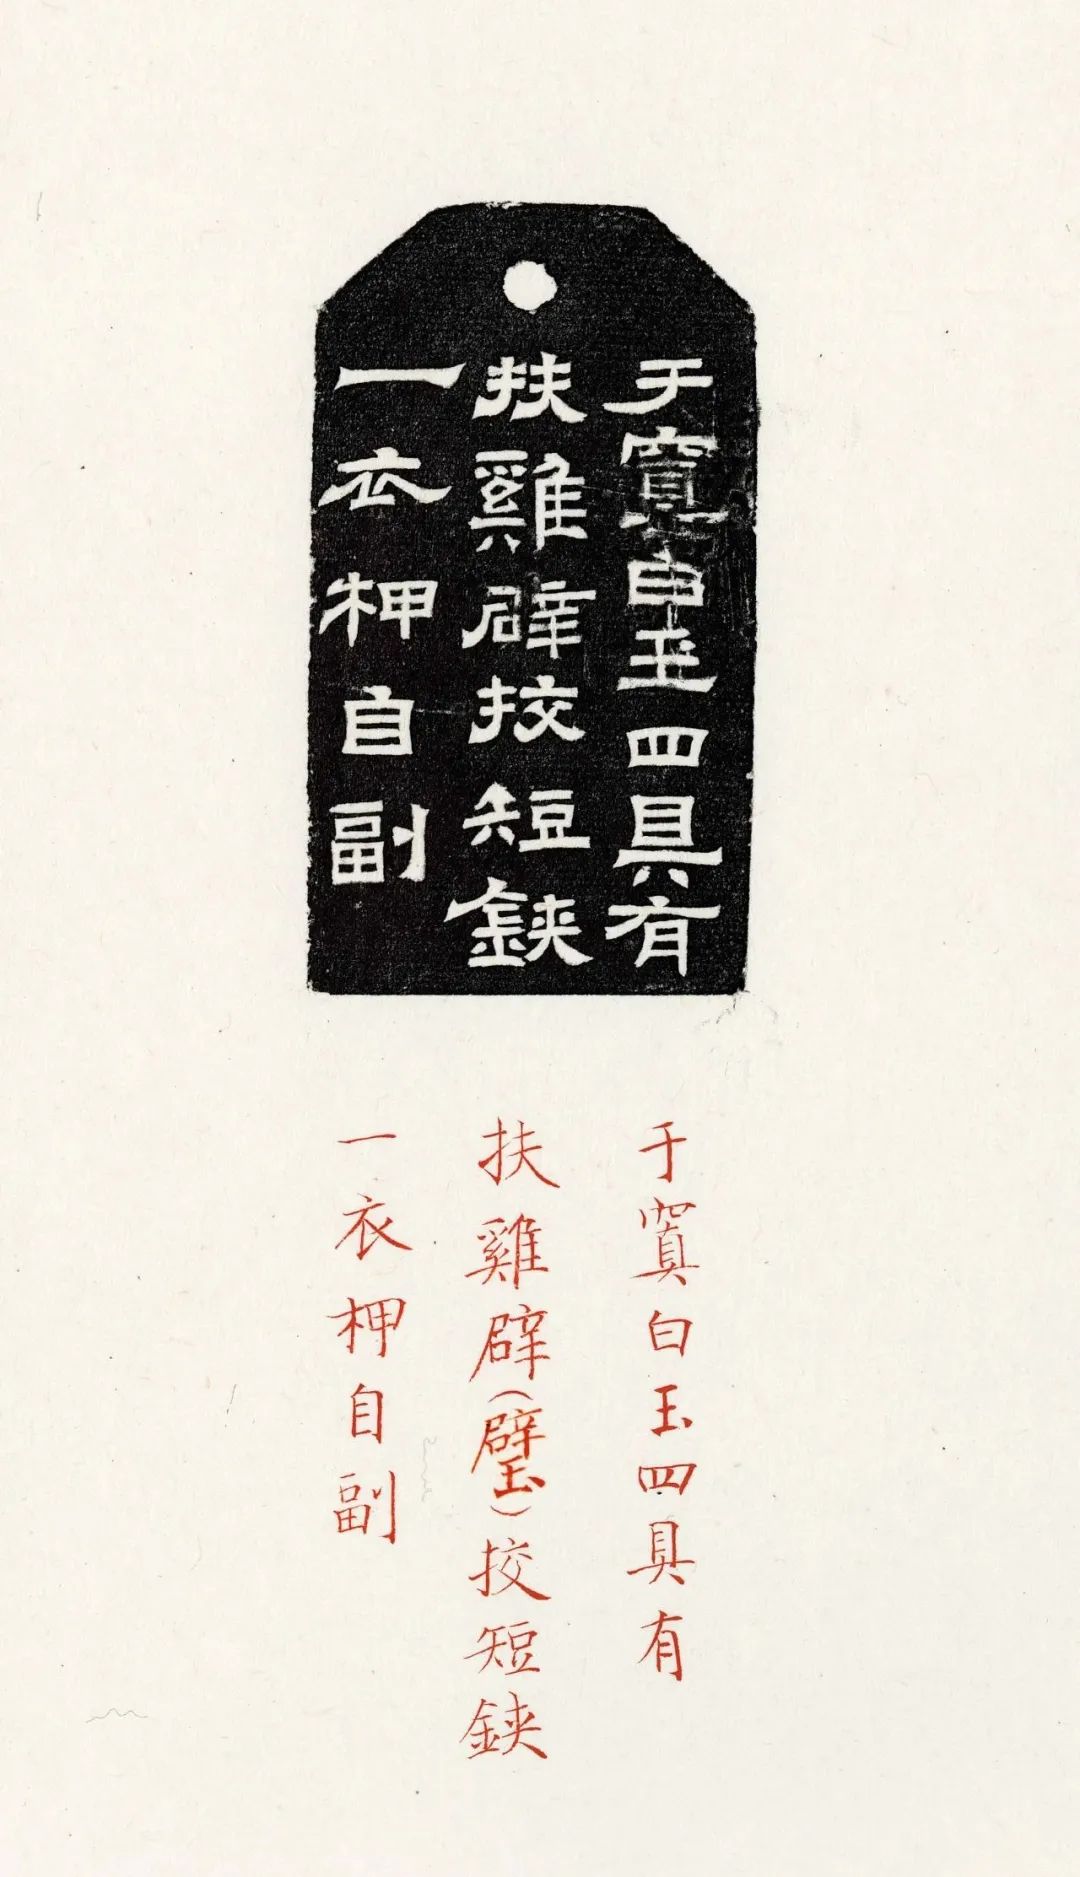 于窴白玉四具有
扶雞辟挍短鋏
一衣柙自副
于窴白玉四具有
扶雞辟(璧)挍短鋏
一衣柙自副